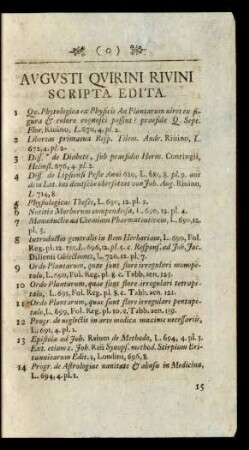 ( o )
AVGVSTI QVIRINI RIVINI
SCRIPTA EDITA.
1 Qv. Physiologica ex Physicis An Plantarum vires ex fi-
gura & colore cognosci possint? præside Q. Sept.
Flor. Rivino, L. 670, 4. pl. 2.
2 Libeream primarius Resp. Tilem. Andr. Rivino, L.
672, 4. pl. 2.
3 Diss. de Diabete, sub præsidio Herm. Conringii,
Helmst. 676, 4. pl. 2.
4 Diss. de Lipsiensi Peste Anni 680, L. 680, 8. pl. 9.
dem Lat. ins deutsche übersetzet von Joh. Aug. Rivino,
L. 714, 8
5 Physiologicæ Theses, L. 690, 12. pl. 2.
6 Notitia Morborum compendiosa, L. 690, 12. pl. 4.
7 Manuductio ad Chemiam Pharmaceuticam, L. 690, 12.
pl. 3.
8 Introductio generalis in Rem Herbariam, L. 690, Fol.
Reg. pl. 12. rec. L. 696, 12. pl. 5. c. Respons. ad Joh. Jac.
Dillenii Obiectiones, L. 720, 12. pl. 7.
9 Ordo Plantarum, quæ sunt flore irregulari monope-
talo, L. 690, Fol. Reg. pl. 8 c. Tabb. aen. 125.
10 Ordo Plantarum, quæ sunt flore irregulari tetrape-
talo, L. 691, Fol. Reg. pl. 8. c. Tabb. aen. 121.
11 Ordo Plantarum, quæ sunt flore irregulari pentape-
talo, L. 699, Fol. Reg. pl. 10. c. Tabb. aen. 139.
12 Progr. de neglectis in arte medica maxime necessariis,
L. 691, 4. pl. 1.
13 Epistola ad Joh. Raium de Methodo, L. 694, 4. pl. 3.
Ext. etiam c. Joh. Raii Synops. method. Stirpium Bri-
tannicarum Edit. 2, Londini, 696, 8.
14 Progr. de Astrologiæ vanitate & abusu in Medicina,
L. 694, 4. pl. 1.
15